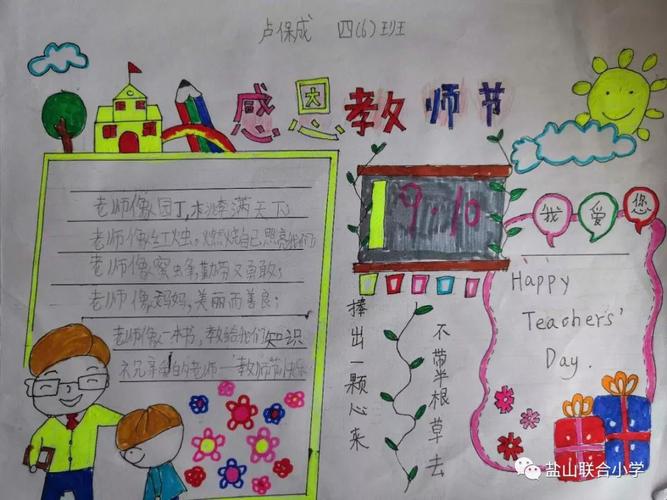 卢保成 四(6)班
感恩教师节
老师像园丁,桃李满天下;
老师像红烛,燃烧自己照亮我们;
老师像蜜蜂,勤劳又勇敢;
老师像妈妈,美丽而善良;
老师像一本书,教给我们知识
祝亲爱的老师——教师节快乐
9.10
捧出一颗心来
不带半根草去
我爱您
Happy
Teachers'
Day.
盐山联合小学